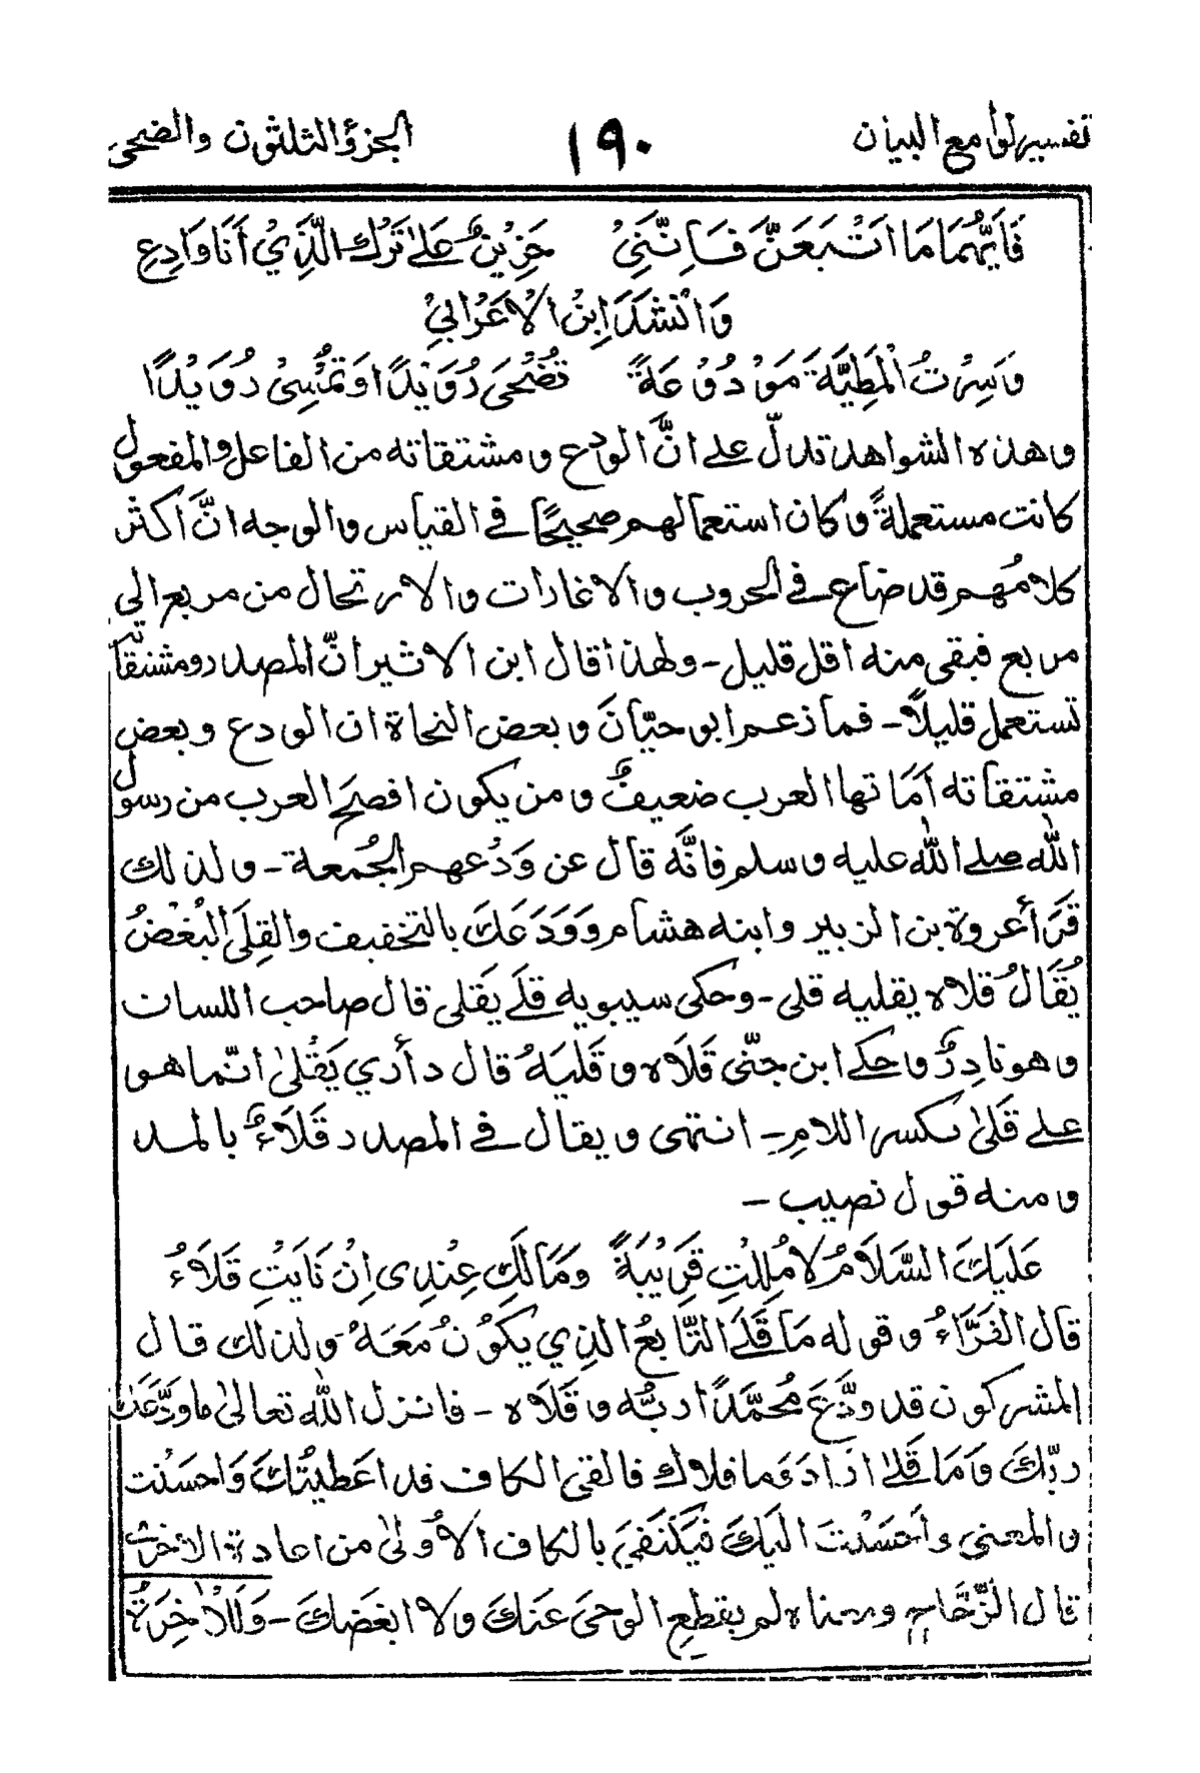 تفسير لوامع البيان ١٩٠ الجزؤ الثلثون والضحى
فَأَيُّهُمَا مَا اَتْبَعَنَّ فَاِنَّنِيْ حَزِيْنٌ عَلىٰ تَرْكِ الَّذِيْ اَنَا وَادِعِ
وَانْشَدَ اِبْنُ الْاَعْرَابِيْ
وَسِرْتُ الْمَطِيَّةَ مَوْدُوْعَةً تُضْحٰى رُوَيْدًا اَوَتُمْسِىْ رُوَيْدًا
وهذه الشواهد تدلّ على انَّ الودع ومشتقاته من الفاعل والمفعول
كانت مستعملةً وكان استعمالهم صحيحًا في القياس والوجه انَّ اكثر
كلامُهم قد ضاع في الحروب والاغارات والارتحال من مربع الي
مربع فبقى منه اقل قليل - ولهذا قال ابن الاثير انّ المصدر ومشتقًا
تستعمل قليلاً - فما زعم ابو حيّانَ وبعض النحاة ان الودع وبعض
مشتقاته اَمَاتها العرب ضعيفٌ ومن يكون افصح العرب من رسول
الله صلى الله عليه وسلم فانَّه قال عن وَدْعهم الجُمعة - ولذلك
قَرَأ عروة بن الزبير وابنه هشام وَوَدَعَكَ بالتخفيف والقِلَى الْبُغْضُ
يُقَالُ قلاه يقليه قلى - وحكى سيبويه قَلَى يَقْلى قال صاحب اللسان
وهو نادِرٌ وحكى ابن جنّى قَلَاه وقَلَيَهُ قال وأري يَقْلىٰ انّما هو
على قَلىٰ بكسر اللامِ - انتهى ويقال في المصدر قَلَاءٌ بالمد
ومنه قول نصيب -
عَلَيْكَ السَّلَامُ لَا مُلِلْتِ قَرِيْبَةً وَمَالَكِ عِنْدِى اِنْ نَايْتِ قَلَاءُ
قال الفَرَّاءُ وقوله مَا قَلىٰ التَّابِعُ الذِي يَكُوْنُ مَعَهُ ولذلك قال
المشركون قد ودَّعَ مُحَمَّدًا ربُّه وقَلَاه - فانزل الله تعالىٰ ما ودَّعَكَ
ربُّكَ وَمَا قَلىٰ اذا دَوما قلاك فالقى الكاف قد اعَطَيْتُكَ وَاحسَنْت
والمعنى وأحسَنْتَ اليكَ فَيَكْتَفِيَ بالكاف الأولىٰ من اعادة الاخرىٰ
قال الزّجاج ومعناه لم يقطع الوحىَ عَنكَ ولا ابغَضكَ - وَلَلْاٰخِرَةُ